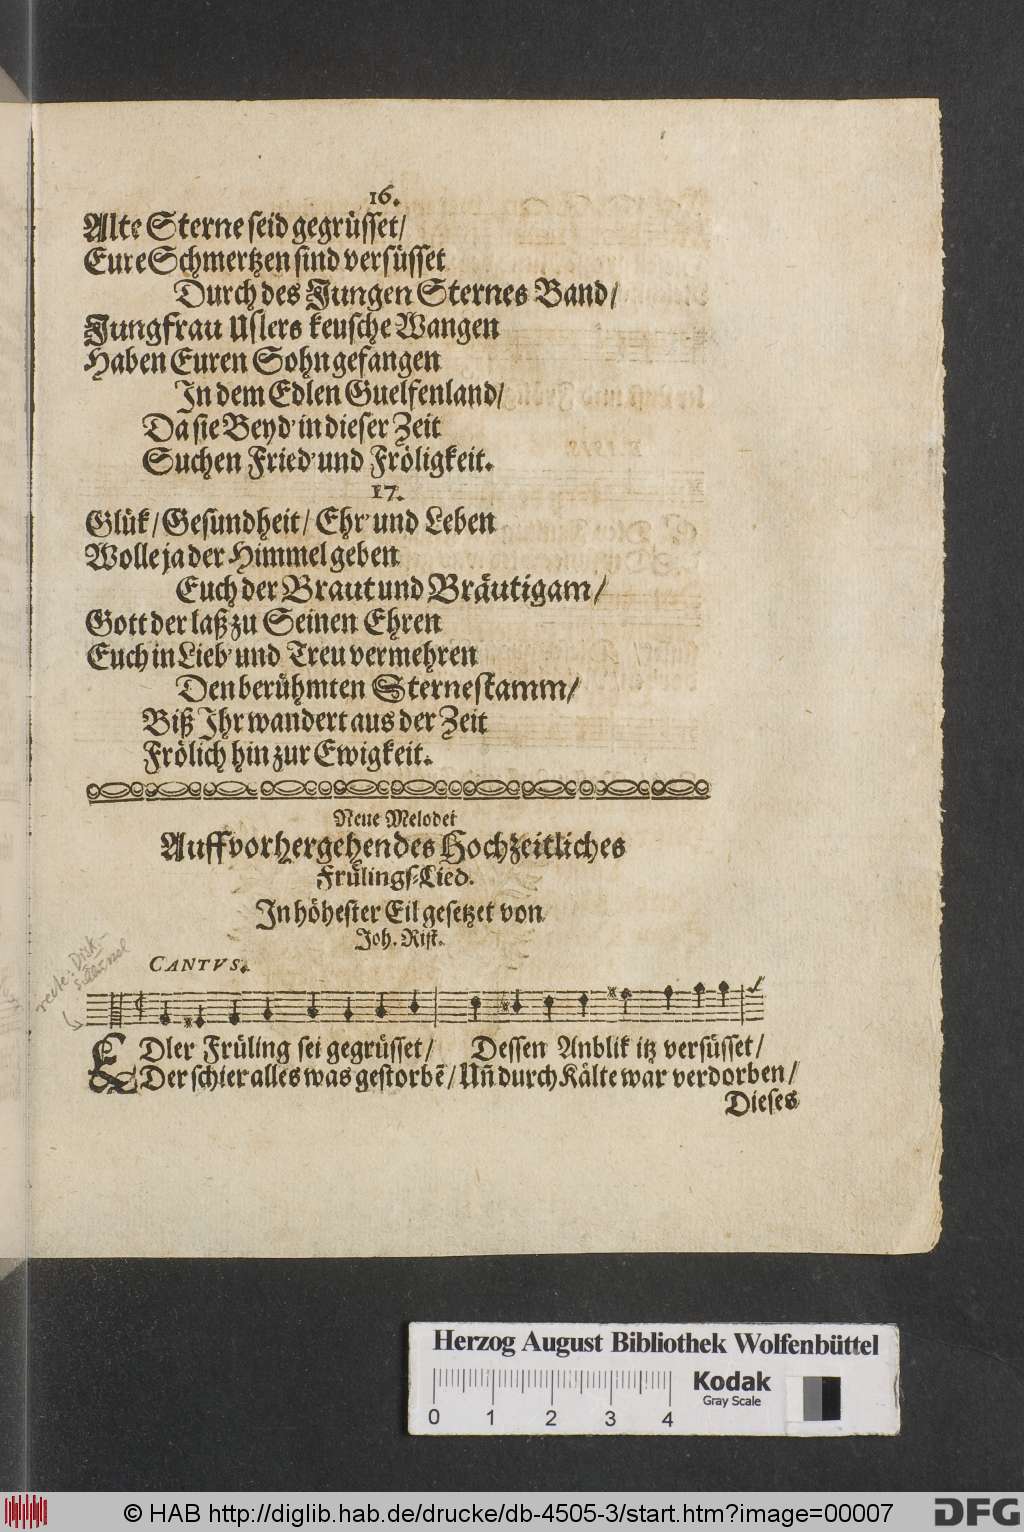 16.
Alte Sterne seid gegrüsset/
Eure Schmertzen sind versüsset
Durch des Jungen Sternes Band/
Jungfrau Uslers keusche Wangen
Haben Euren Sohn gefangen
In dem Edlen Guelfenland/
Da sie Beyd' in dieser Zeit
Suchen Fried' und Fröligkeit.
17.
Glük/Gesundheit/ Ehr' und Leben
Wolle ja der Himmel geben
Euch der Braut und Bräutigam/
Gott der laß zu Seinen Ehren
Euch in Lieb' und Treu vermehren
Den berühmten Sternestamm/
Biß Ihr wandert aus der Zeit
Frölich hin zur Ewigkeit.
Neue Melodei
Auff vorhergehendes Hochzeitliches
Frülings-Lied.
In höhester Eil gesetzet von
Joh. Rist.
recte:
CANTVS.
EDler Früling sei gegrüsset/ Dessen Anblik itz versüsset/
Der schier alles was gestorbẽ/Uñ durch Kälte war verdorben/
Dieses
Herzog August Bibliothek Wolfenbüttel
0 1 2 3 4
Kodak
Gray Scale
© HAB http://diglib.hab.de/drucke/db-4505-3/start.htm?image=00007
DFG